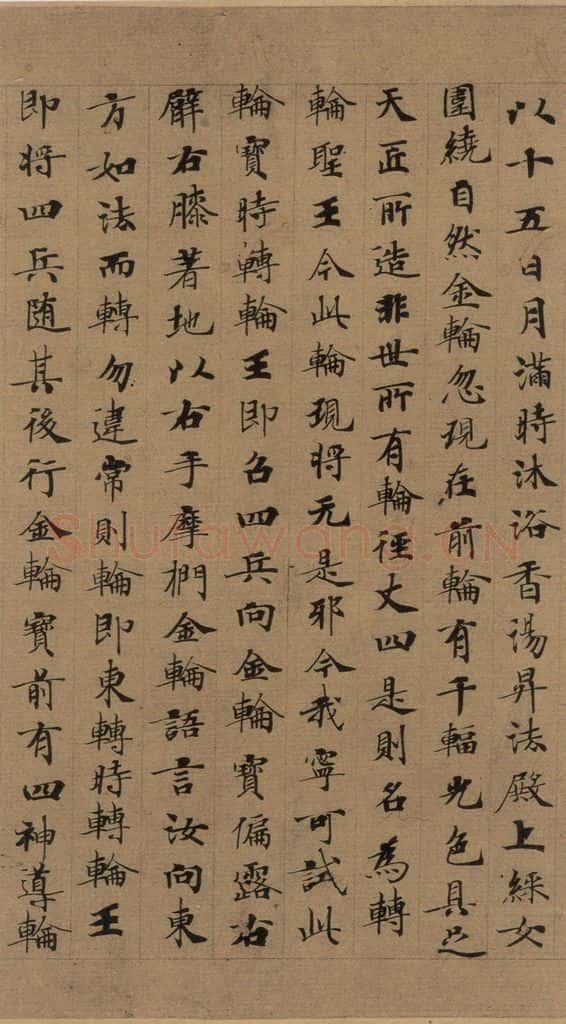 以十五日月滿時沐浴香湯昇法殿上婇女
圍繞自然金輪忽現在前輪有千輻光色具足
天匠所造非世所有輪徑丈四是則名為轉
輪聖王今此輪現將无是邪今我寧可試此
輪寶時轉輪王即召四兵向金輪寶偏露右
臂右膝著地以右手摩捫金輪語言汝向東
方如法而轉勿違常則輪即東轉時轉輪王
即將四兵随其後行金輪寶前有四神導輪
Shufawang.CN